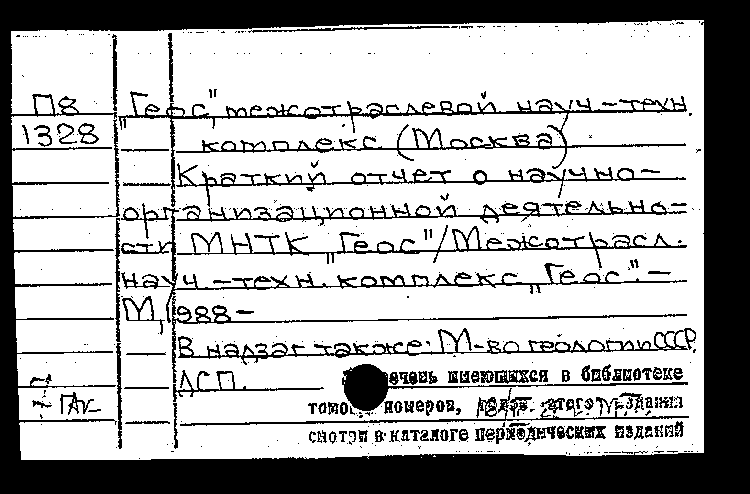 П8
1328
"Геос", межотраслевой науч.-техн.
комплекс (Москва)
Краткий отчет о научно-
организационной деятельно-
сти МНТК "Геос"/Межотрасл.
науч.-техн. комплекс "Геос".-
М., 1988-
В надзаг также: М-во геологии СССР.
ДСП.
имеющихся в библиотеке
томов, номеров, этого издания
смотри в каталоге периодических изданий